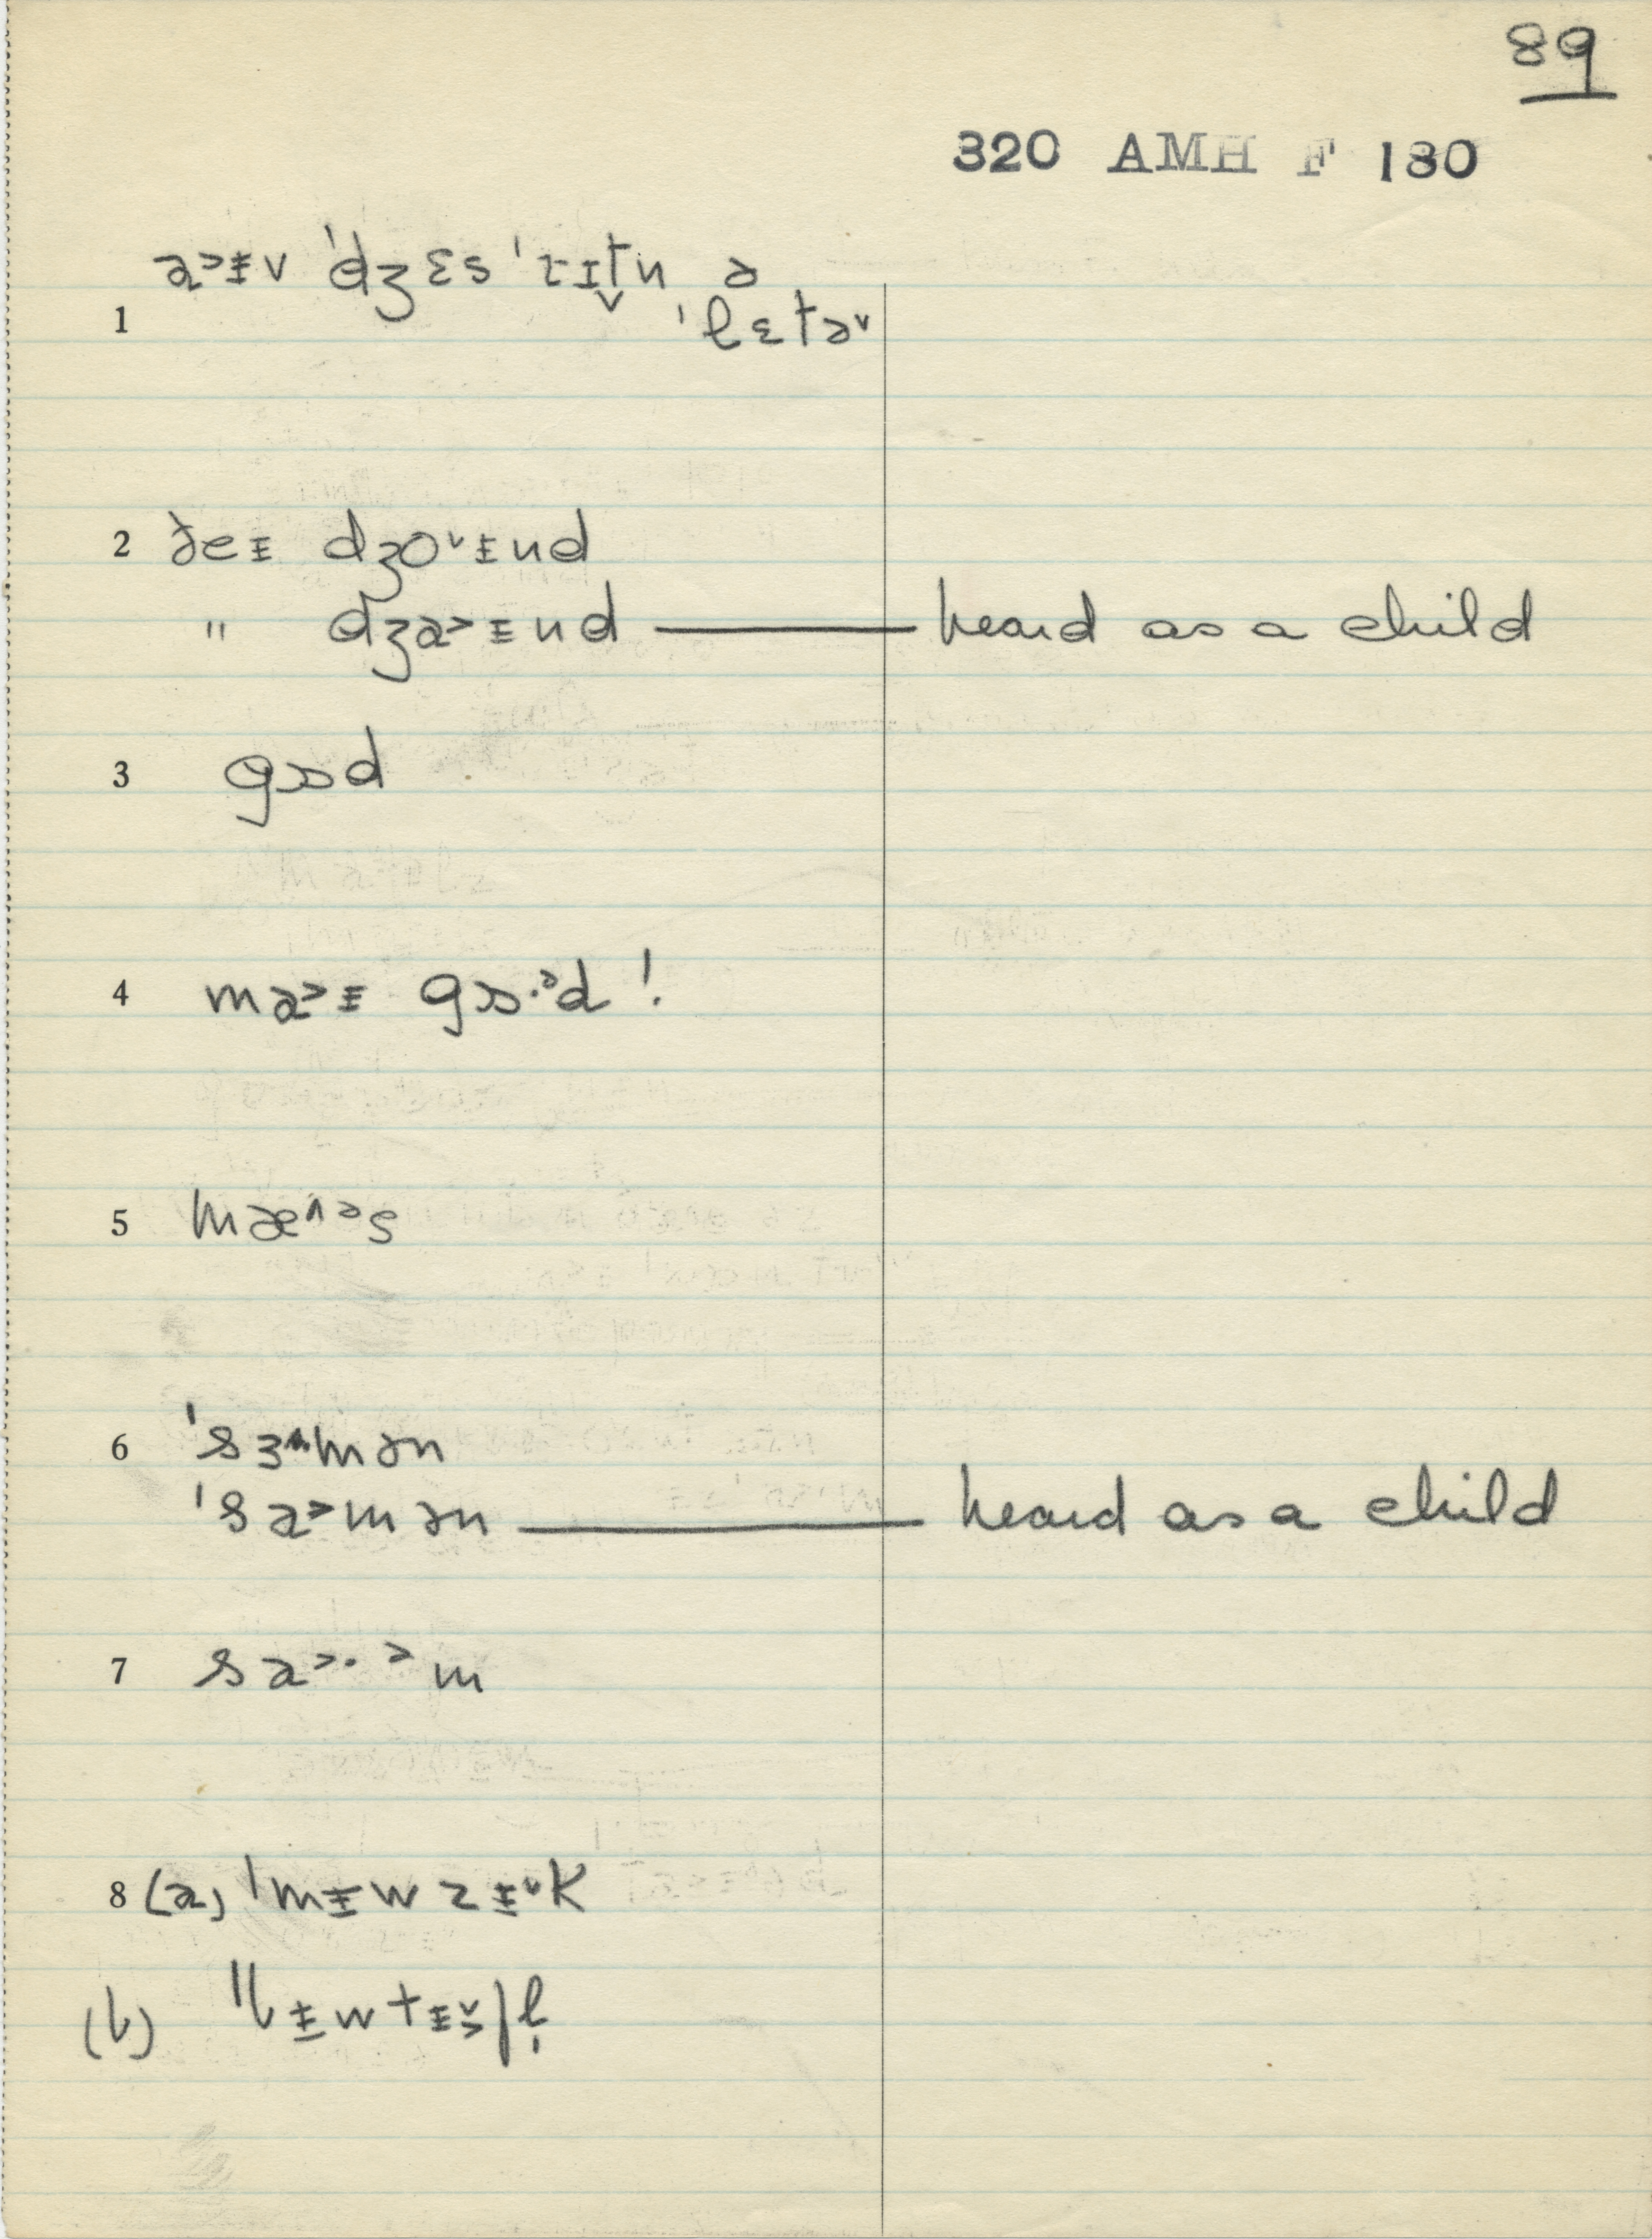 89
320 AMH F 180
a˃ɪv ˈdʒɛsˈrɪtn̩ ə
1 ˈlɛtə˅
2 ðeɪ dʒo˅ɪnd
" dʒa˃ɪnd — heard as a child
3 gɒd
4 ma˃ɪ gɒ·ᵊd !
5 mæ˄ᵊs
6 ˈsɜ˄mən
ˈsa˃mən — heard as a child
7 sa˃·ᵊm
8 (a) ˈmɪuzɪ˅k
(b) ˈbɪutɪ˅˃fl̩